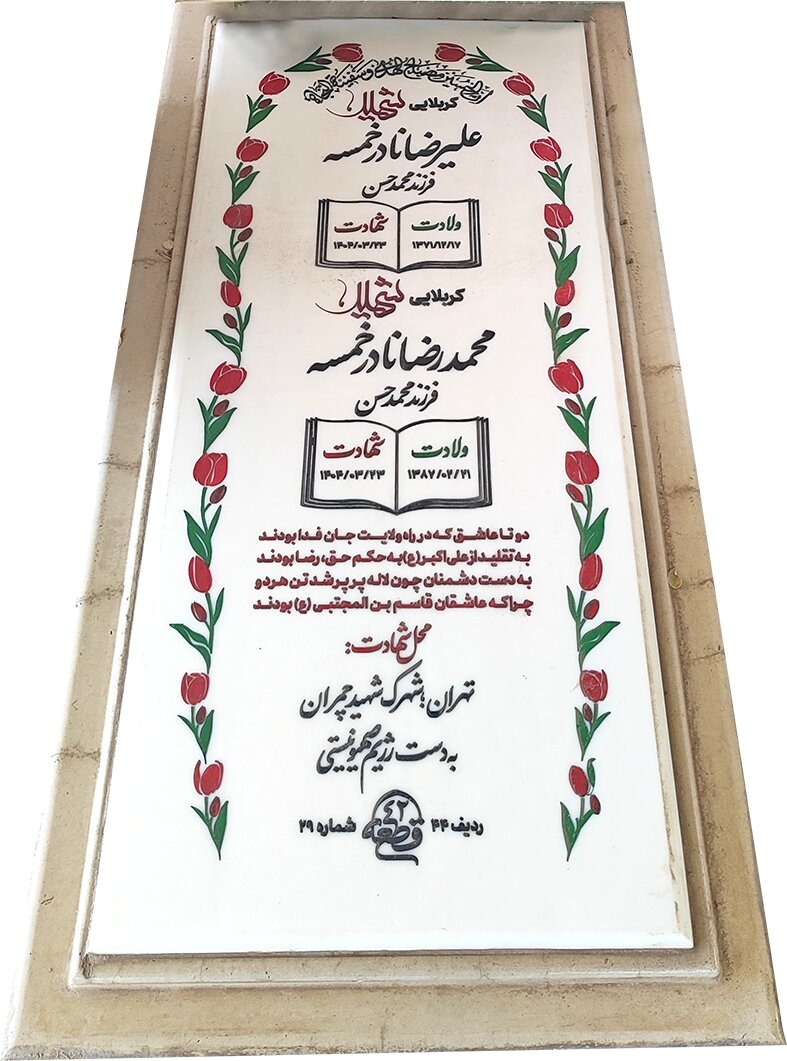 ان الحسین مصباح الهدی و سفینة النجاة
کربلایی شهید
علیرضا نادر خمسه
فرزند محمد حسن
ولادت شهادت
۱۳۷۱/۱۲/۱۷ ۱۴۰۴/۰۳/۲۳
کربلایی شهید
محمدرضا نادر خمسه
فرزند محمد حسن
ولادت شهادت
۱۳۸۷/۰۲/۲۱ ۱۴۰۴/۰۳/۲۳
دو تا عاشق که در راه ولایت جان فدا بودند
به تقلید از علی اکبر (ع) به حکم حق، رضا بودند
به دست دشمنان چون لاله پر پر شد تن هر دو
چرا که عاشقان قاسم بن المجتبی (ع) بودند
محل شهادت:
تهران؛ شهرک شهید چمران
به دست رژیم صهیونیستی
ردیف ۴۴ قطعه ۴۲ شماره ۲۹